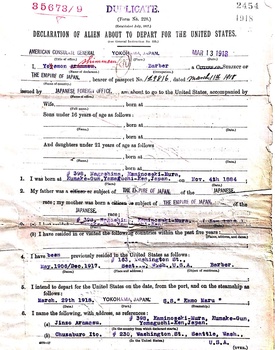 35673/9
DUPLICATE.
2454
1918
(Form No. 228.)
DECLARATION OF ALIEN ABOUT TO DEPART FOR THE UNITED STATES.
AMERICAN CONSULATE GENERAL YOKOHAMA, JAPAN. MAR 13 1918
I, Yeznon Aramasu, Barber a Citizen or SUBJECT OF
THE EMPIRE OF JAPAN, bearer of passport No. dated March 11th 1918
issued by JAPANESE FOREIGN OFFICE, am about to go to the United States, accompanied by
Wife, born at
Sons under 16 years of age as follows:
born at
born at
And daughters under 21 years of age as follows:
born at
born at
1. I was born at # 398, Nagashima, Kaminoseki-Mura, Kumake-Gun, Yamaguchi-Ken, Japan, on Nov. 4th 1884
2. My father was a citizen or subject of THE EMPIRE OF JAPAN, of the JAPANESE.
race; my mother was born a citizen or subject of THE EMPIRE OF JAPAN, of the
JAPANESE. race.
(b) I have resided in or visited the following countries within the past five years:
4. I have been previously resided in the United States as follows:
# 163, Washington St.,
May.1906/Dec.1917, Seattle, Wash., U.S.A. Barber.
5. I intend to depart for the United States on the date, from the port, and on the steamship as
follows:
March. 29th 1918, YOKOHAMA, JAPAN, S.S." Kamo Maru "
6. I name the following, with address, as reference:
# 398, Kaminoseki-Mura, Kumake-Gun,
(a) Jinzo Aramasu, Yamaguchi-Ken, Japan.
(b) Chusaburo Ito, # 230, Washington St., Seattle, Wash.,
U.S.A